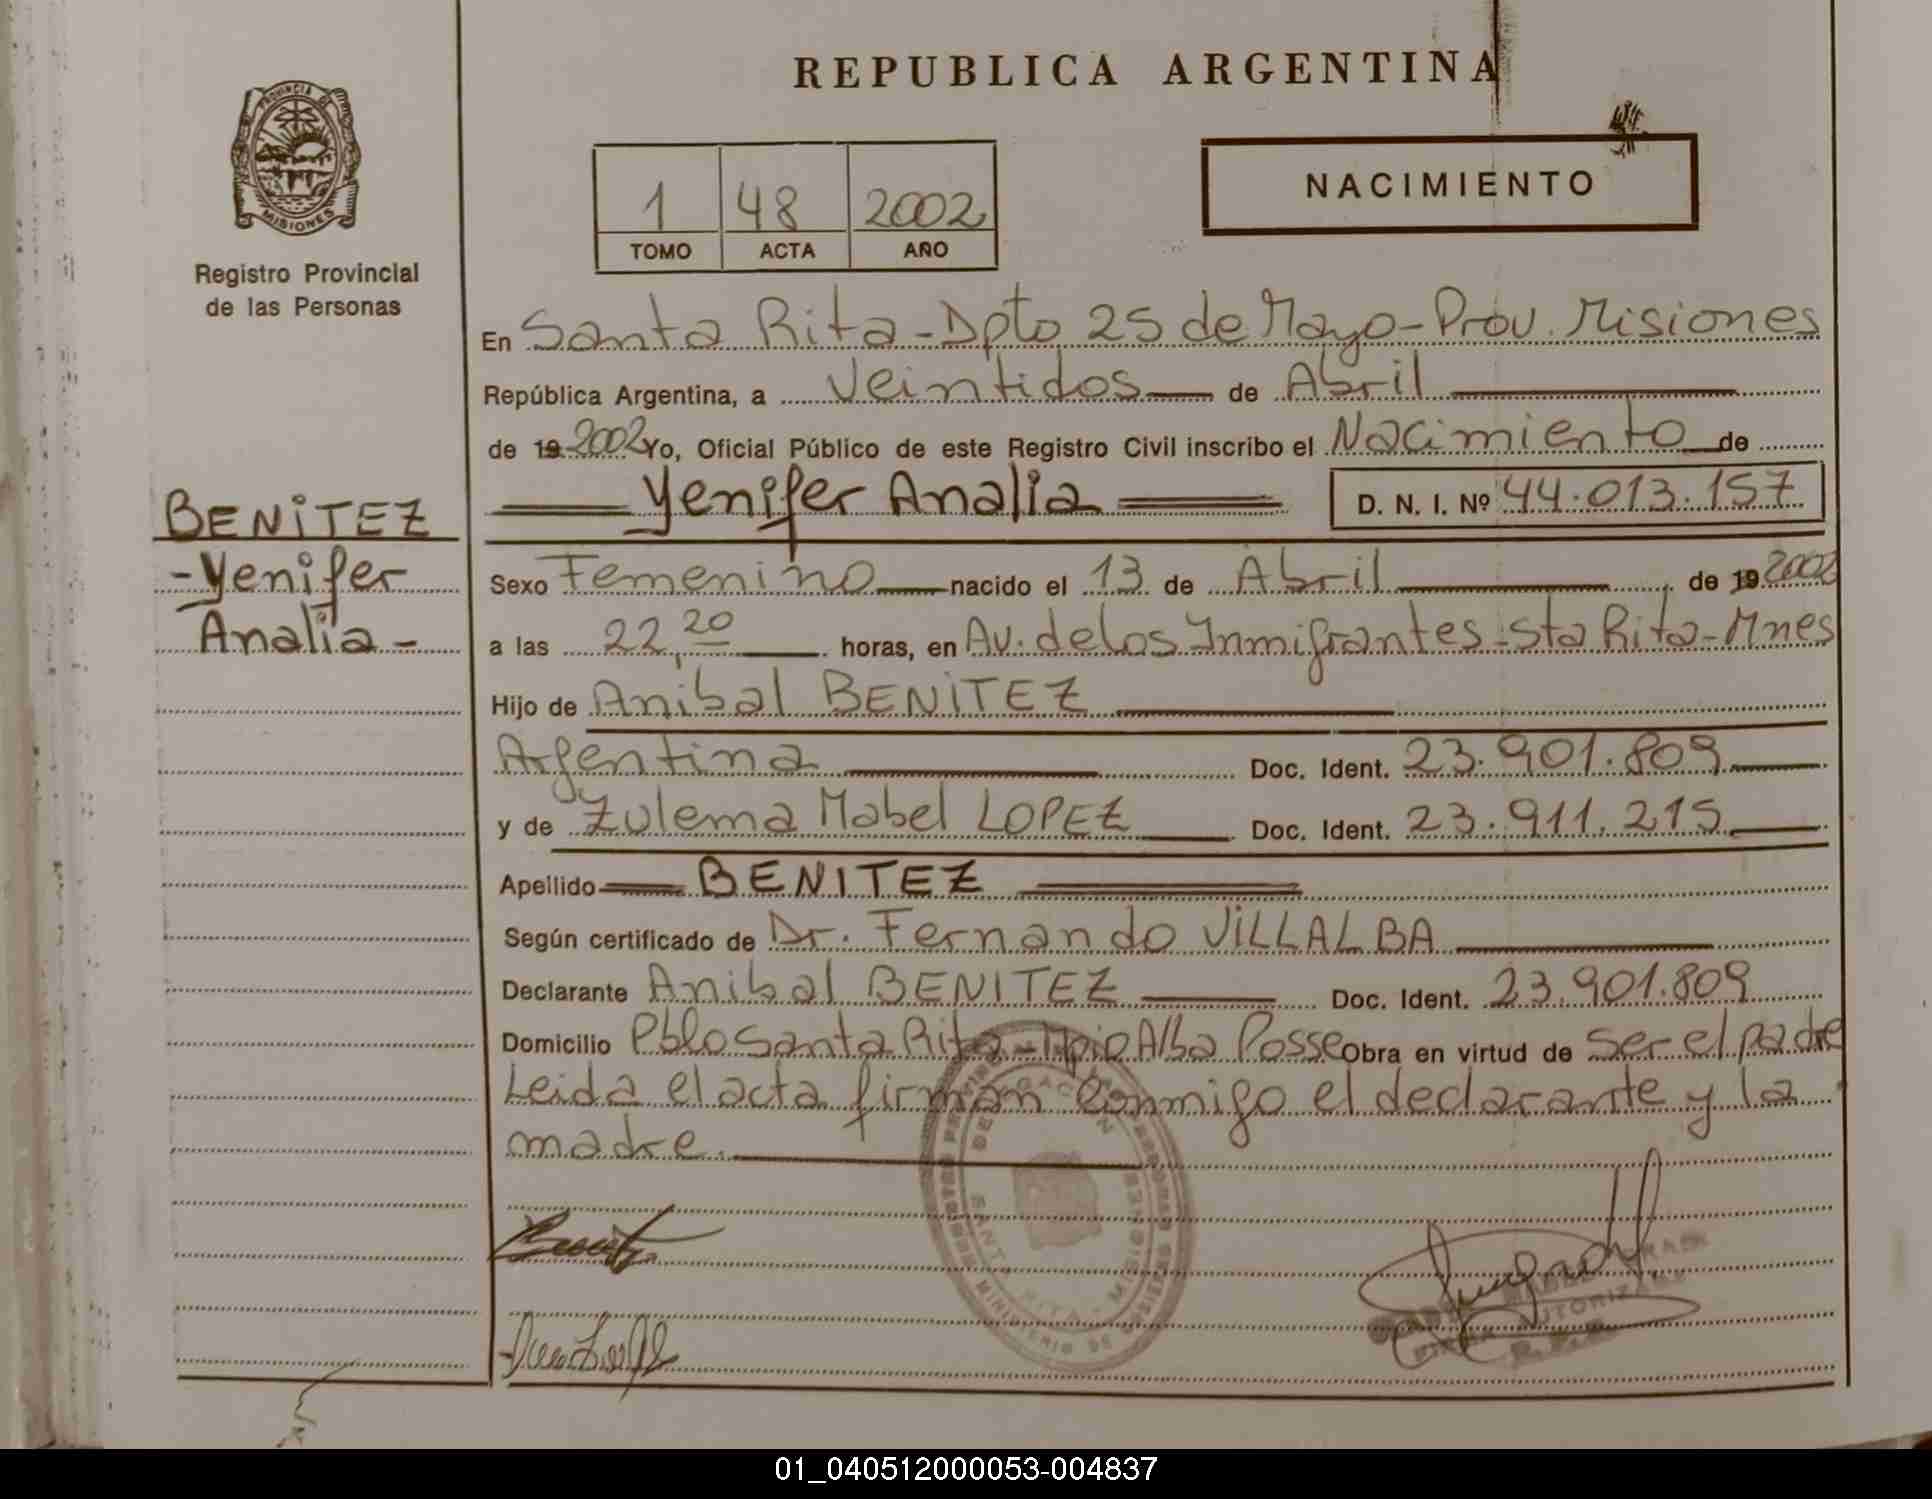 REPUBLICA ARGENTINA
PROVINCIA DE
MISIONES
Registro Provincial
de las Personas
1 48 2002
TOMO ACTA AÑO
NACIMIENTO
En Santa Rita - Dpto 25 de Mayo - Prov. Misiones
República Argentina, a Veintidos de Abril
de 19 2002 Yo, Oficial Público de este Registro Civil inscribo el Nacimiento de
Yenifer Analia D. N. I. Nº 44.013.157
BENITEZ
- Yenifer
Analia -
Sexo Femenino nacido el 13 de Abril de 19 2002
a las 22,20 horas, en Av. de los Inmigrantes - Sta Rita - Mnes
Hijo de Anibal BENITEZ
Argentina Doc. Ident. 23.901.809
y de Zulema Mabel LOPEZ Doc. Ident. 23.911.215
Apellido BENITEZ
Según certificado de Dr. Fernando VILLALBA
Declarante Anibal BENITEZ Doc. Ident. 23.901.809
Domicilio Pblo Santa Rita - Mpio Alba Posse Obra en virtud de ser el padre
Leida el acta firman conmigo el declarante y la
madre.
DELEGACION
SANTA RITA - MISIONES
MINISTERIO DE
01_040512000053-004837